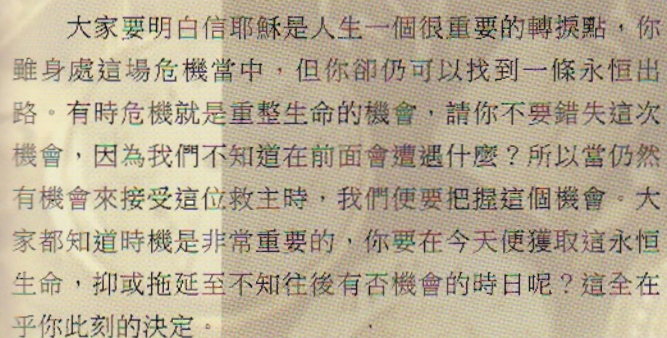 大家要明白信耶穌是人生一個很重要的轉捩點，你
雖身處這場危機當中，但你卻仍可以找到一條永恒出
路。有時危機就是重整生命的機會，請你不要錯失這次
機會，因為我們不知道在前面會遭遇什麼？所以當仍然
有機會來接受這位救主時，我們便要把握這個機會。大
家都知道時機是非常重要的，你要在今天便獲取這永恒
生命，抑或拖延至不知往後有否機會的時日呢？這全在
乎你此刻的決定。